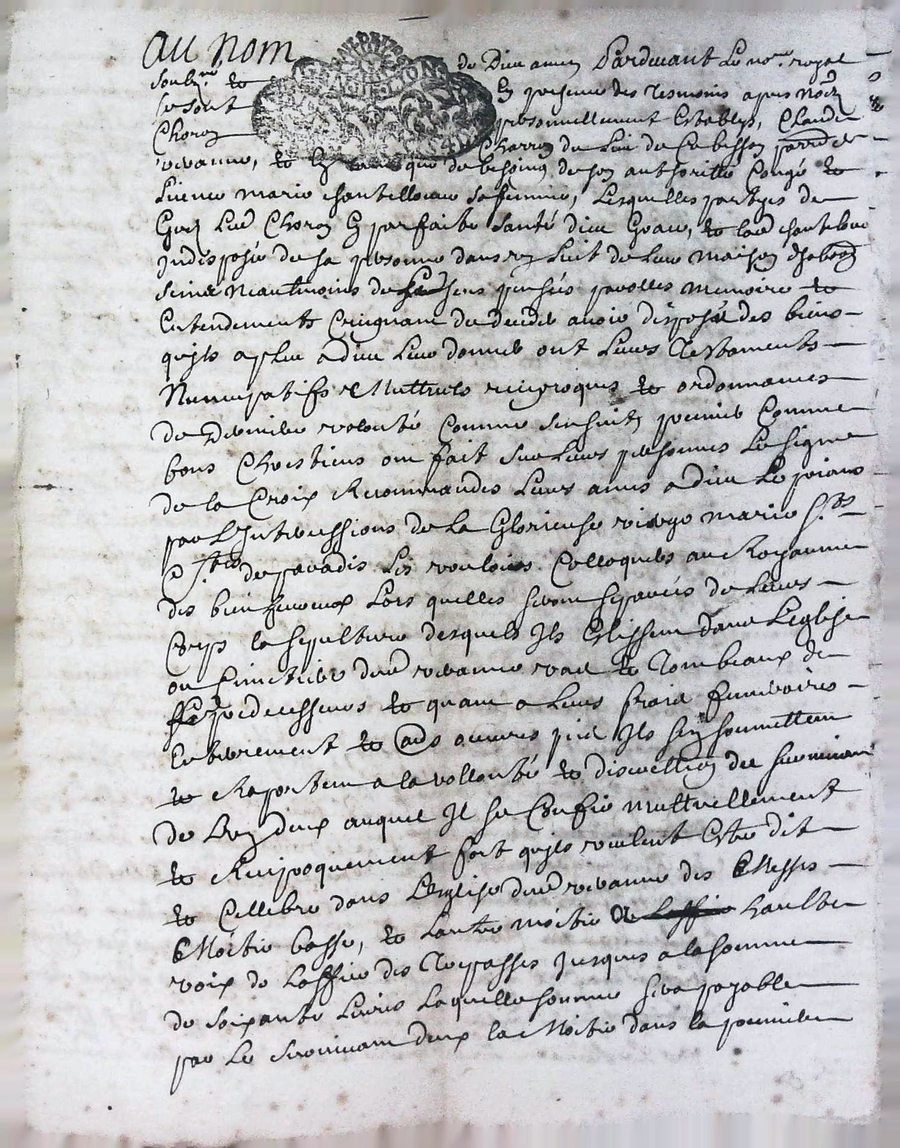 au nom de Dieu amen Pardevant Le no.re royal
soubne et En presence des tesmoins apres nommez
se sont personnellement Establys, Claude
Choron Charron du Lieu de parr.e de
rovanne, et de son authoritté Congé et
Licence marie chantelloue sa femme, Lesquelles partyes de
Gred Led Choron En parfaite santé dieu Grace, et lade chantelloue
Indisposée de sa personne dans un Lict de Leur maison d'habon
seine neantmoins de ses sens pensés parolles memoire et
Entendements Creignant de deceder avoir disposé des biens
quils a plu a dieu Leur donner ont Leurs Testaments
Nuncupatifs Muttuels reciproques et ordonnances
de Derniere volonté Comme sensuit premier Comme
bons Chrestiens ont fait sur Leurs personnes Le signe
de la Croix Recommandés Leurs ames a dieu Le priant
par L'Intercessions de La Glorieuse vierge marie S.ts
& S.tes de paradis Les vouloir Colloquer au Royaume
des bien heureux Lors quelles seront separées de Leurs
Corps la sepulture desquels Ils Elissent dans L'eglise
ou cimetiere dud rovanne et Tombeaux de
predecesseurs et quant a Leurs fraix funeraires
Enterrement et œuvres pies Ils sen soumettent
et Raportent a la vollonté et discrettion du survivant
de Eux deux auquel Il se Confie muttuellement
et Reciproquement sort quils veulent Estre dit
et Cellebre dans L'eglise dud rovanne des Messes
Moitie basse, et Lautre moitie de Loffice haulte
voix de Loffice des Trepasses Jusques a la somme
de soixante Livres Laquelle somme sera payable
par Le survivant deux la Moitie dans la premiere